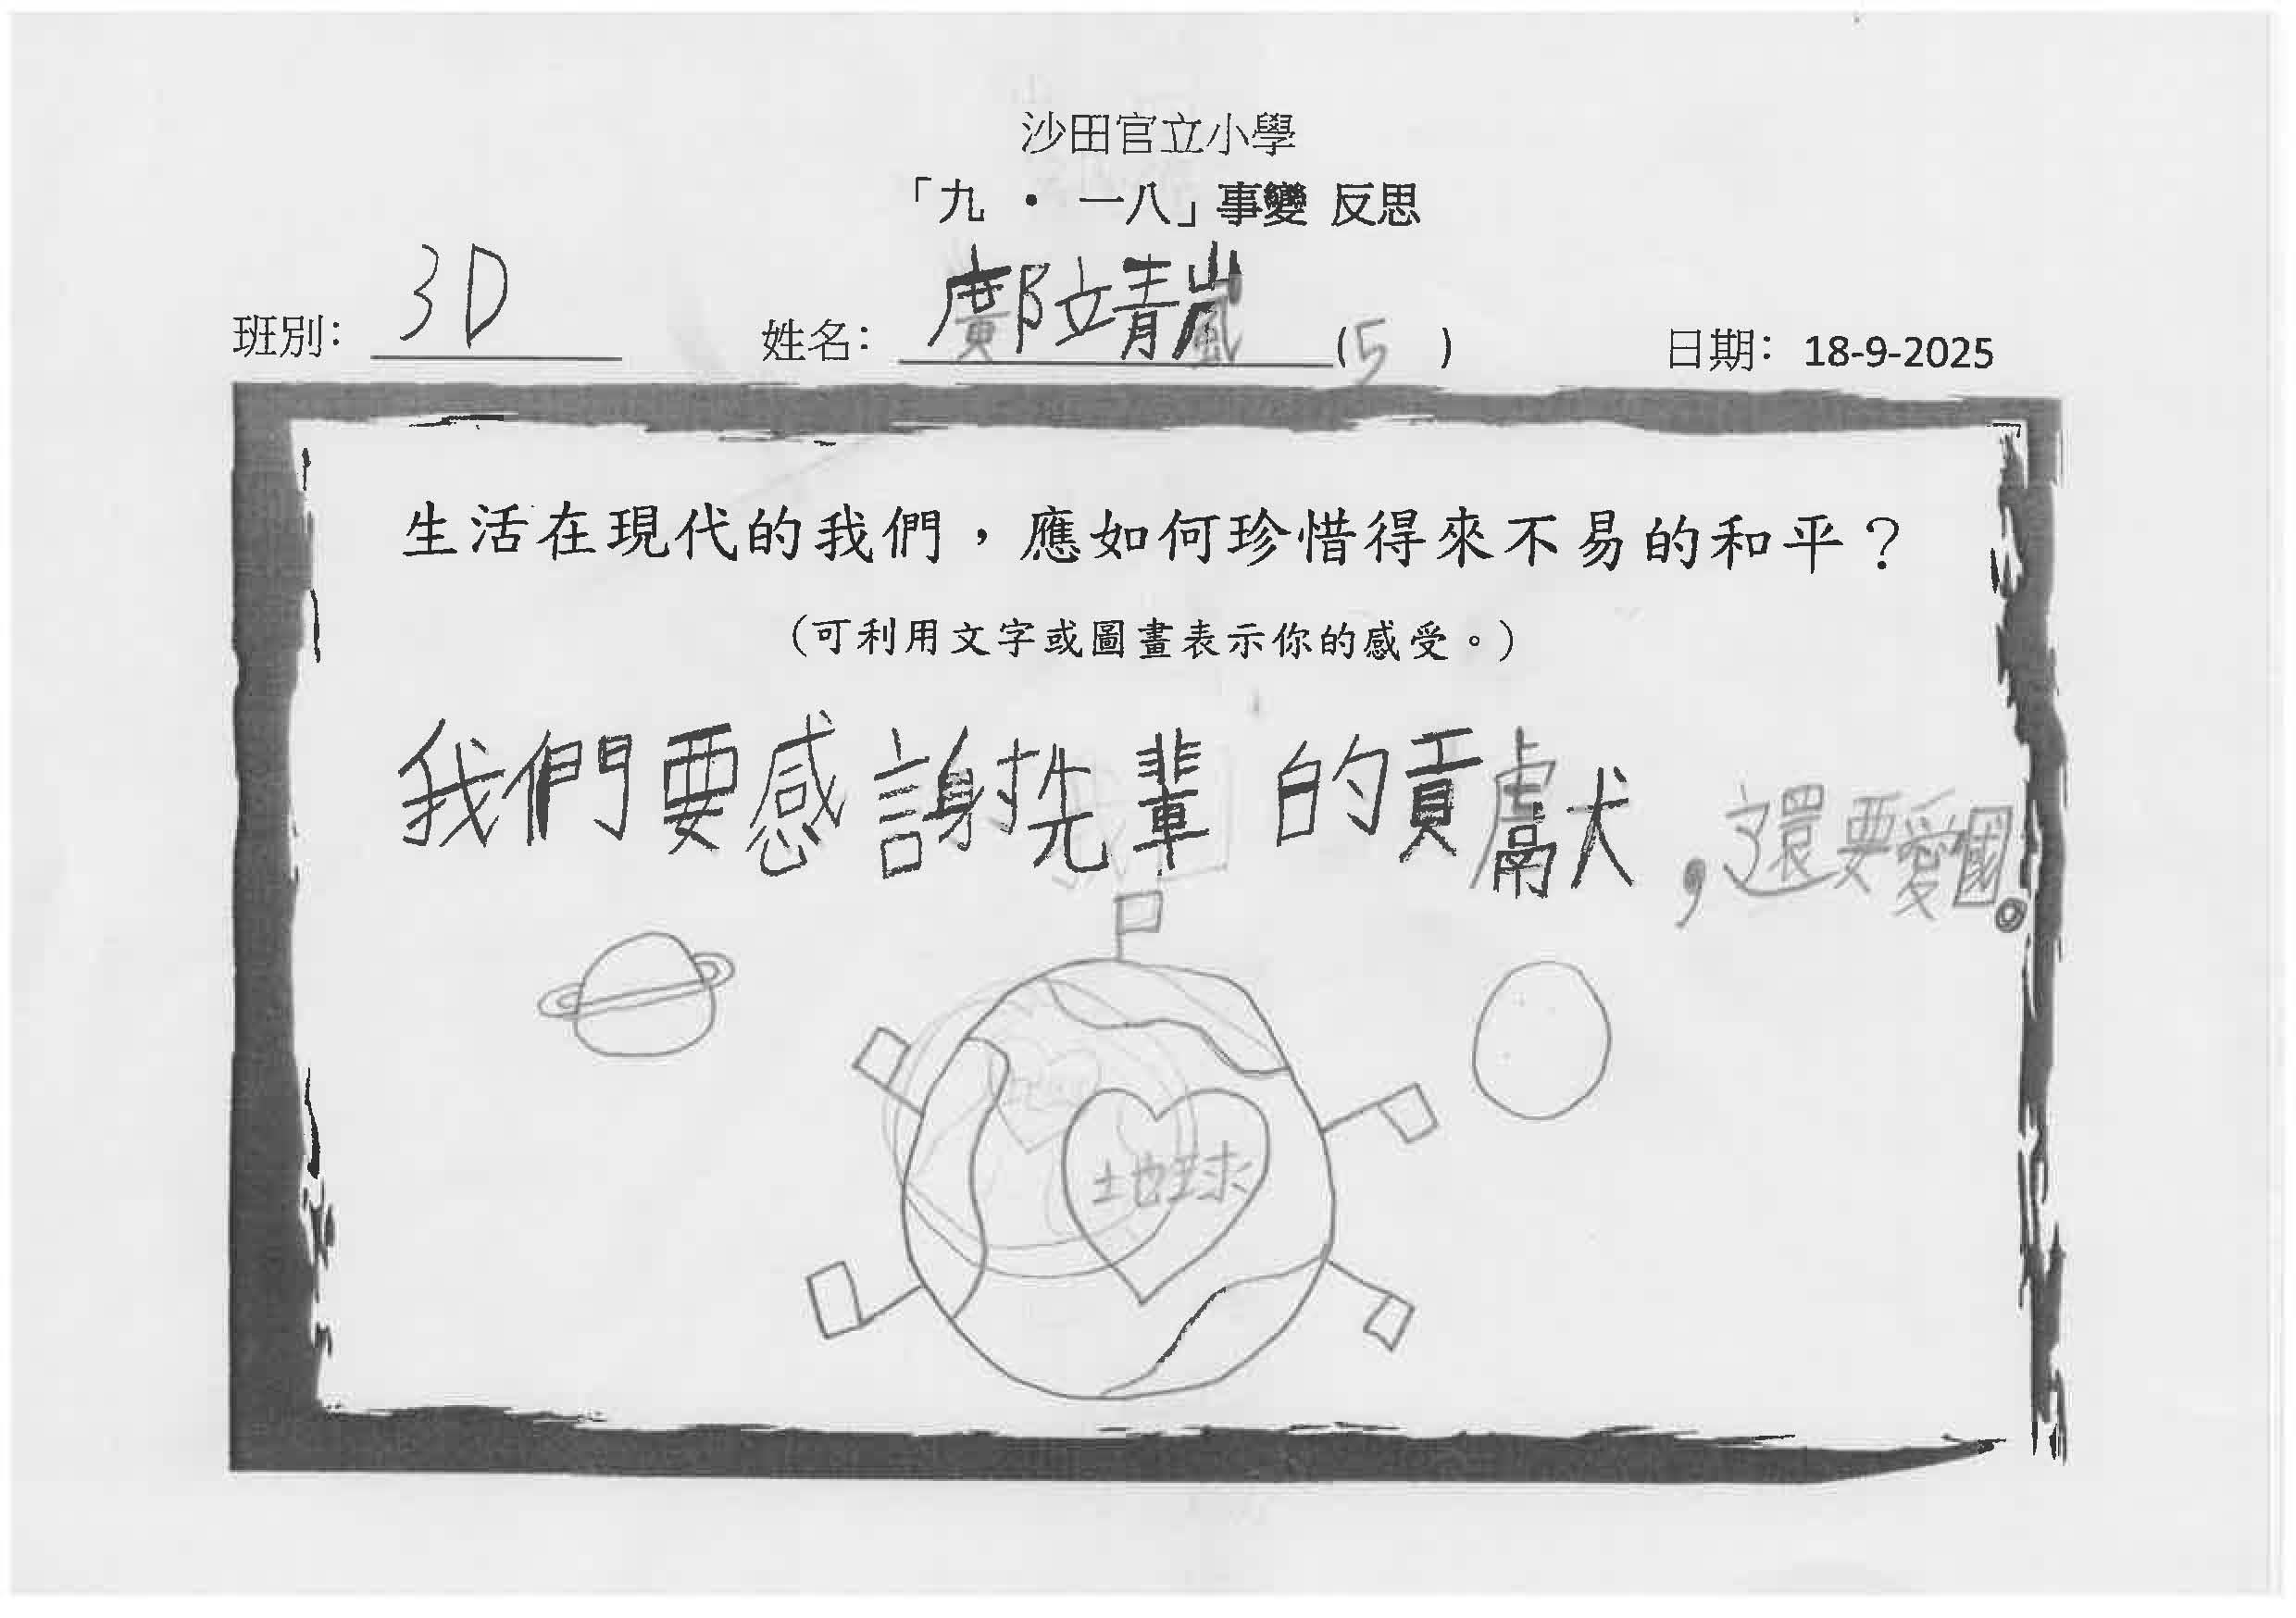 沙田官立小學
「九 · 一八」事變 反思
班別： 3D 姓名： 鄺靖嵐 (5 ) 日期： 18-9-2025
生活在現代的我們，應如何珍惜得來不易的和平？
（可利用文字或圖畫表示你的感受。）
我們要感謝先輩的貢獻，還要愛國。
地球